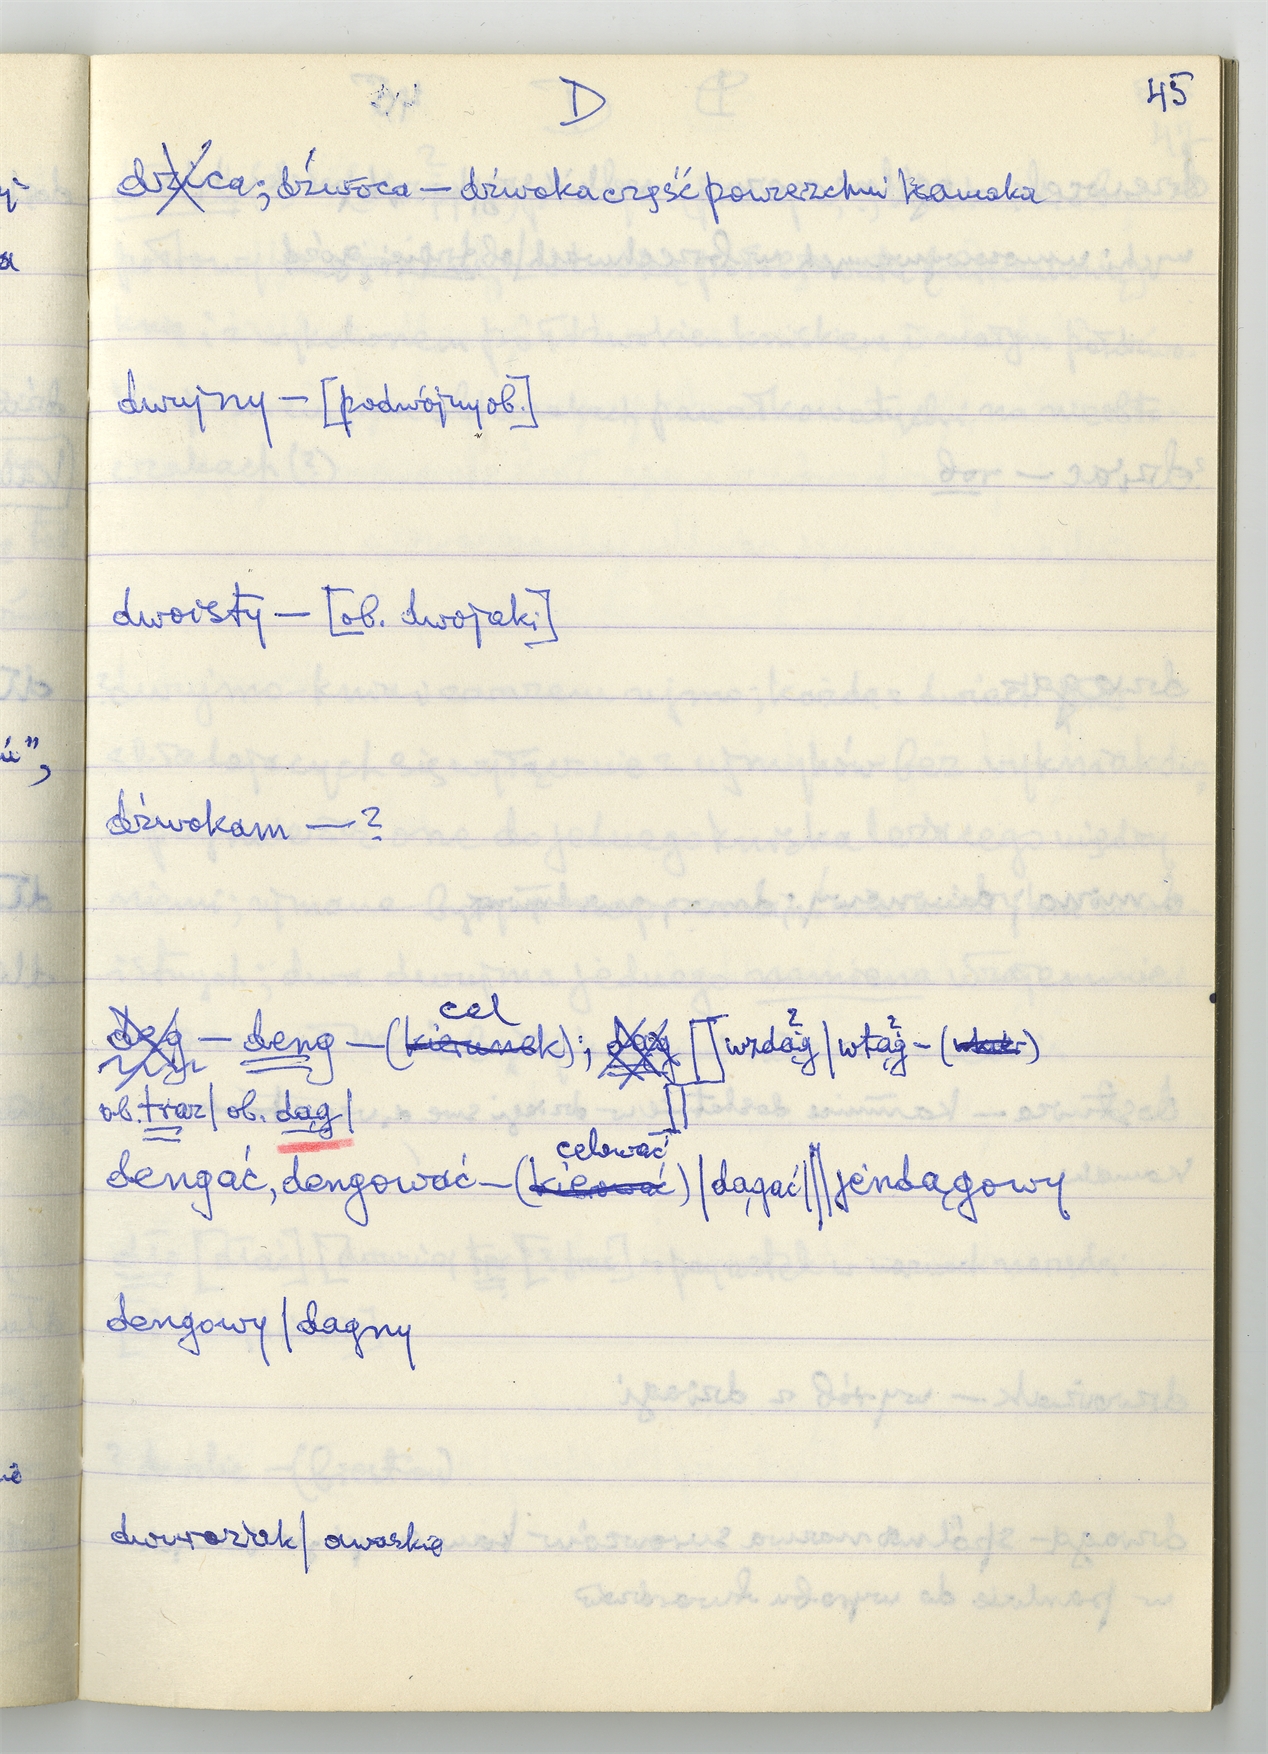 D 45
drzica; dźwoca – dźwoka część powierzchni kamoka
dwujny – [podwójny ob.]
dwoisty – [ob. dwojaki]
dźwokam – ?
deg – deng – (kierunek) cel; dąg [] wzdąg ? | wtąg ? – ( )
ob. traz | ob. dąg |
dengać, dengować – (kierować) celować | dągać ||| jéndągowy
dengowy | dagny
dwurożek |